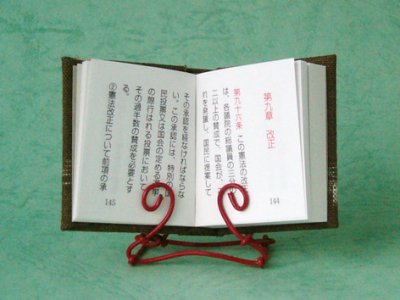 第九章 改正
第九十六条 この憲法の改正
は、各議院の総議員の三分の
二以上の賛成で、国会が、こ
れを発議し、国民に提案して
144
その承認を経なければならな
い。この承認には、特別の国
民投票又は国会の定める選挙
の際行はれる投票において、
その過半数の賛成を必要とす
る。
②憲法改正について前項の承
145